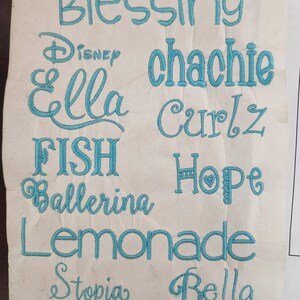 Blessing
Disney chachie
Ella Curlz
FISH Hope
Ballerina
Lemonade
Stopia Bella